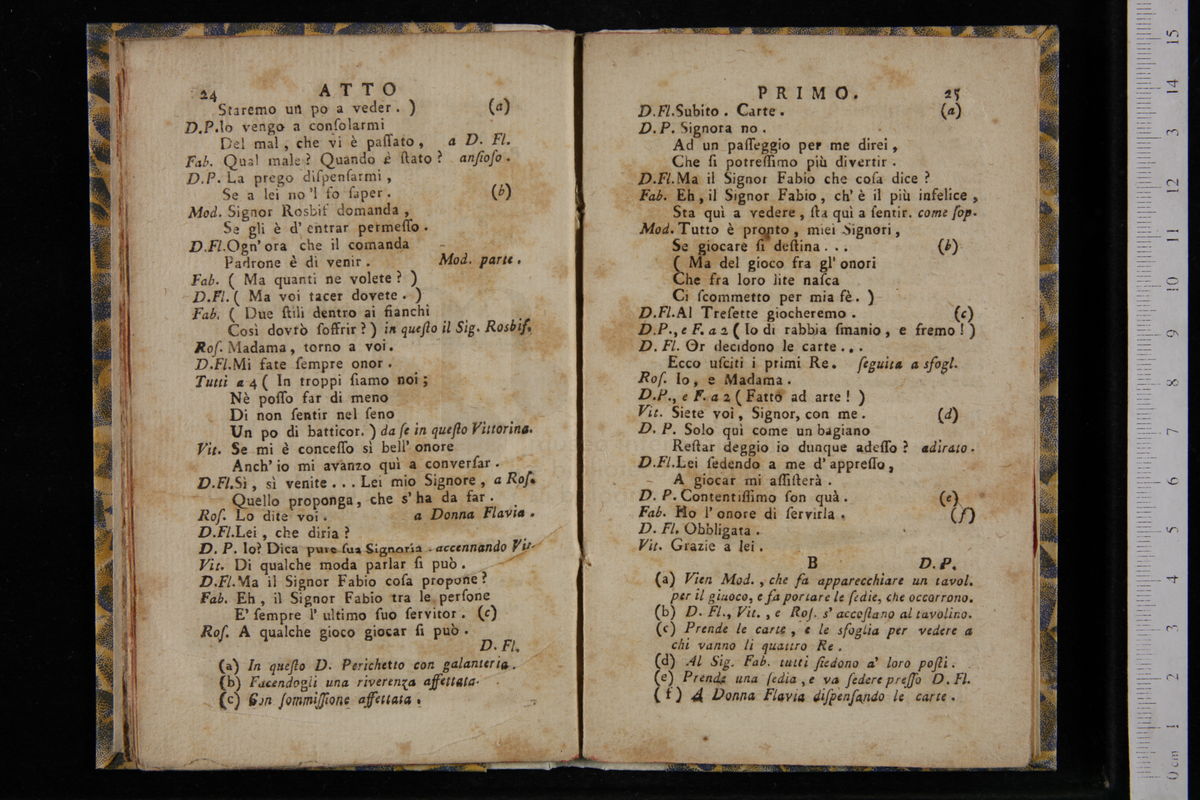 24 ATTO
Staremo un po a veder. ) (a)
D.P.Io vengo a conſolarmi
Del mal, che vi è paſſato, a D. Fl.
Fab. Qual male? Quando è ſtato? anſioſo.
D.P. La prego diſpenſarmi,
Se a lei no'l fo ſaper. (b)
Mod. Signor Rosbif domanda,
Se gli è d'entrar permeſſo.
D.Fl.Ogn'ora che il comanda
Padrone è di venir. Mod. parte.
Fab. ( Ma quanti ne volete? )
D.Fl.( Ma voi tacer dovete. )
Fab. ( Due ſtili dentro ai fianchi
Così dovrò ſoffrir? ) in queſto il Sig. Rosbif.
Roſ. Madama, torno a voi.
D.Fl.Mi fate ſempre onor.
Tutti a 4 ( In troppi ſiamo noi;
Nè poſſo far di meno
Di non ſentir nel ſeno
Un po di batticor. ) da ſe in queſto Vittorina.
Vit. Se mi è conceſſo sì bell'onore
Anch'io mi avanzo quì a converſar.
D.Fl.Sì, sì venite... Lei mio Signore, a Roſ.
Quello proponga, che s'ha da far.
Roſ. Lo dite voi. a Donna Flavia.
D.Fl.Lei, che diria?
D. P. Io? Dica pure ſua Signoria. accennando Vit.
Vit. Di qualche moda parlar ſi può.
D.Fl.Ma il Signor Fabio coſa propone?
Fab. Eh, il Signor Fabio tra le perſone
E' ſempre l'ultimo ſuo ſervitor. (c)
Roſ. A qualche gioco giocar ſi può.
D. Fl.
(a) In queſto D. Perichetto con galanteria.
(b) Facendogli una riverenza affettata.
(c) Con ſommiſſione affettata.
PRIMO. 25
D.Fl.Subito. Carte. (a)
D. P. Signora no.
Ad un paſſeggio per me direi,
Che ſi potreſſimo più divertir.
D.Fl.Ma il Signor Fabio che coſa dice?
Fab. Eh, il Signor Fabio, ch'è il più infelice,
Sta quì a vedere, ſta quì a ſentir. come ſop.
Mod. Tutto è pronto, miei Signori,
Se giocare ſi deſtina... (b)
( Ma del gioco fra gl'onori
Che fra loro lite naſca
Ci ſcommetto per mia fè. )
D.Fl.Al Treſette giocheremo. (c)
D.P., e F. a 2 ( Io di rabbia ſmanio, e fremo! )
D. Fl. Or decidono le carte...
Ecco uſciti i primi Re. ſeguita a sfogl.
Roſ. Io, e Madama.
D.P., e F. a 2 ( Fatto ad arte! )
Vit. Siete voi, Signor, con me. (d)
D. P. Solo quì come un bagiano
Reſtar deggio io dunque adeſſo? adirato.
D.Fl.Lei ſedendo a me d'appreſſo,
A giocar mi aſſiſterà.
D. P. Contentiſſimo ſon quà. (e)
Fab. Ho l'onore di ſervirla. (f)
D. Fl. Obbligata.
Vit. Grazie a lei.
B D.P.
(a) Vien Mod., che fa apparecchiare un tavol.
per il giuoco, e fa portare le ſedie, che occorrono.
(b) D. Fl., Vit., e Roſ. s'accoſtano al tavolino.
(c) Prende le carte, e le sfoglia per vedere a
chi vanno li quattro Re.
(d) Al Sig. Fab. tutti ſiedono a' loro poſti.
(e) Prende una ſedia, e va ſedere preſſo D. Fl.
(f) A Donna Flavia diſpenſando le carte.
0 cm 1 2 3 4 5 6 7 8 9 10 11 12 13 14 15